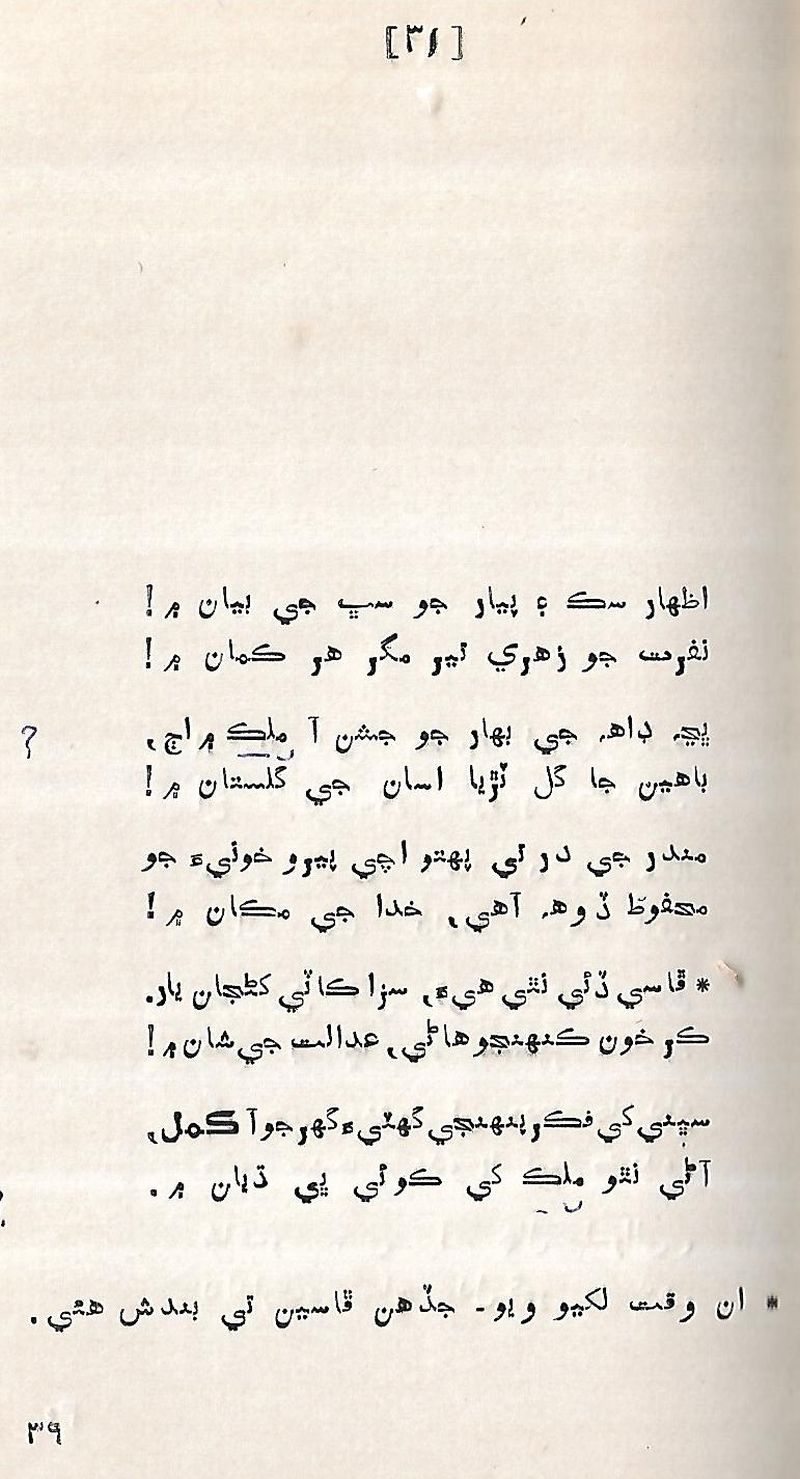 [۳۱]
اظھار سڪ ۽ پيار جو سڀ جي بيان ۾!
نفرت جو زھري تير مگر ھر ڪمان ۾!
ٻڍہ ڊاھہ جي بھار جو جشن آ ملڪ ۾ اڄ،
?
باھين جا گل ٽڙيا اسان جي گلستان ۾!
مندر جي در تي پھتو اچي پيرو خونيءَ جو
محفوظ ڏوھہ آھي، خدا جي مڪان ۾!
* ڦاسي ڏئي نٿي ھيءَ، سزا ڪاٽي کڻجان يار.
ڪر خون ڪنھنجو ھاڻي، عدالت جي شان ۾!
سڀني کي فڪر پنھنجي گھٽيءَ گھر جو آ ڪمل،
آڻي نٿو ملڪ کي ڪوئي ڀي ڌيان ۾.
* ان وقت لکيو ويو۔ جڏھن ڦاسين تي بندش ھئي.
۳۹